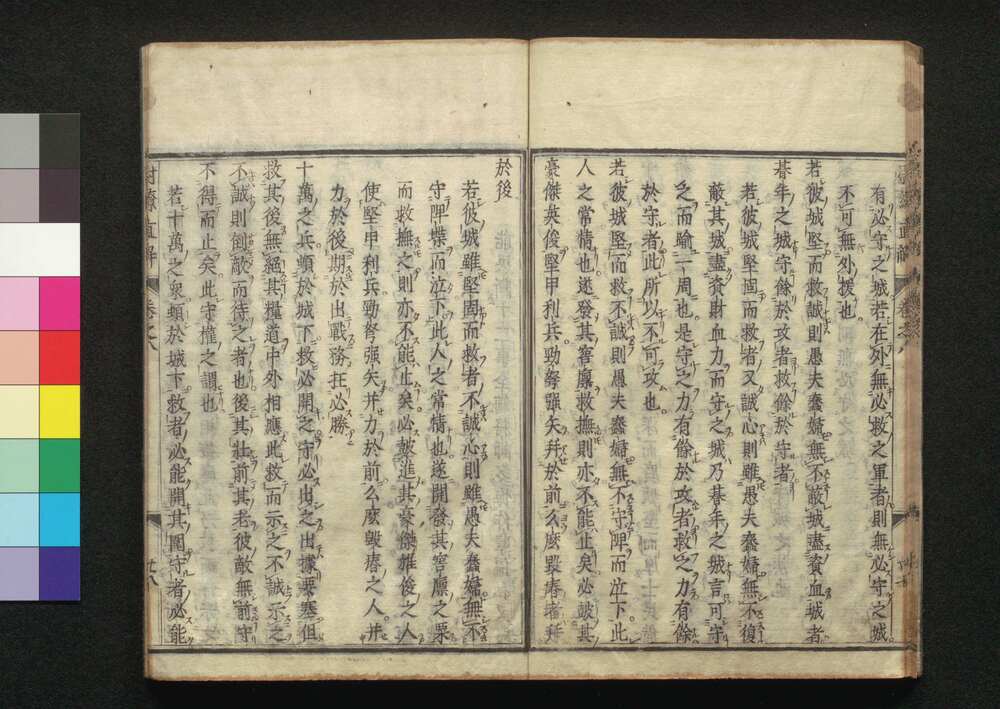 有必守之城若在外無必救之軍者則無必守之城
不可無外援也
若彼城堅而救誠則愚夫蠢婦無不蔽城盡資血城者
朞年之城守餘於攻者救餘於守者
若彼城堅固而救者又誠心則雖愚夫蠢婦無不復
蔽其城盡資財血力而守之城乃朞年之城言可守
之而喻一周也是守之力有餘於攻者救之力有餘
於守者此所以不可攻也
若彼城堅而救不誠則愚夫蠢婦無不守陴而泣下此
人之常情也遂發其窖廩救撫則亦不能止矣必鼓其
豪傑英俊堅甲利兵勁弩彊矢并於前么麼毀瘠者并
於後
若彼城雖堅固而救者不誠心則雖愚夫蠢婦無不
守陴堞而泣下此人之常情也遂開發其窖廩之粟
而救撫之則亦不能止矣必鼓進其豪傑雄俊之人
使堅甲利兵勁弩强矢并力於前么麼毀瘠之人并
力於後期於出戰務在必勝
十萬之兵頓於城下救必開之守必出之出據要塞但
救其後無絕其糧道中外相應此救而示之不誠示之
不誠則倒敵而待之者也後其壯前其老彼敵無前守
不得而止矣此守權之謂也
若十萬之衆頓於城下救者必能開其圍守者必能
尉繚直解 卷之八 廿八